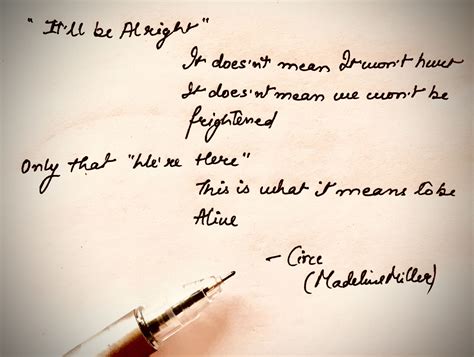 "It'll be Alright"
It does'nt mean It won't hurt
It does'nt mean we won't be
frightened
Only that "We're Here"
This is what it means to be
Alive
- Circe
(Madeline Miller)